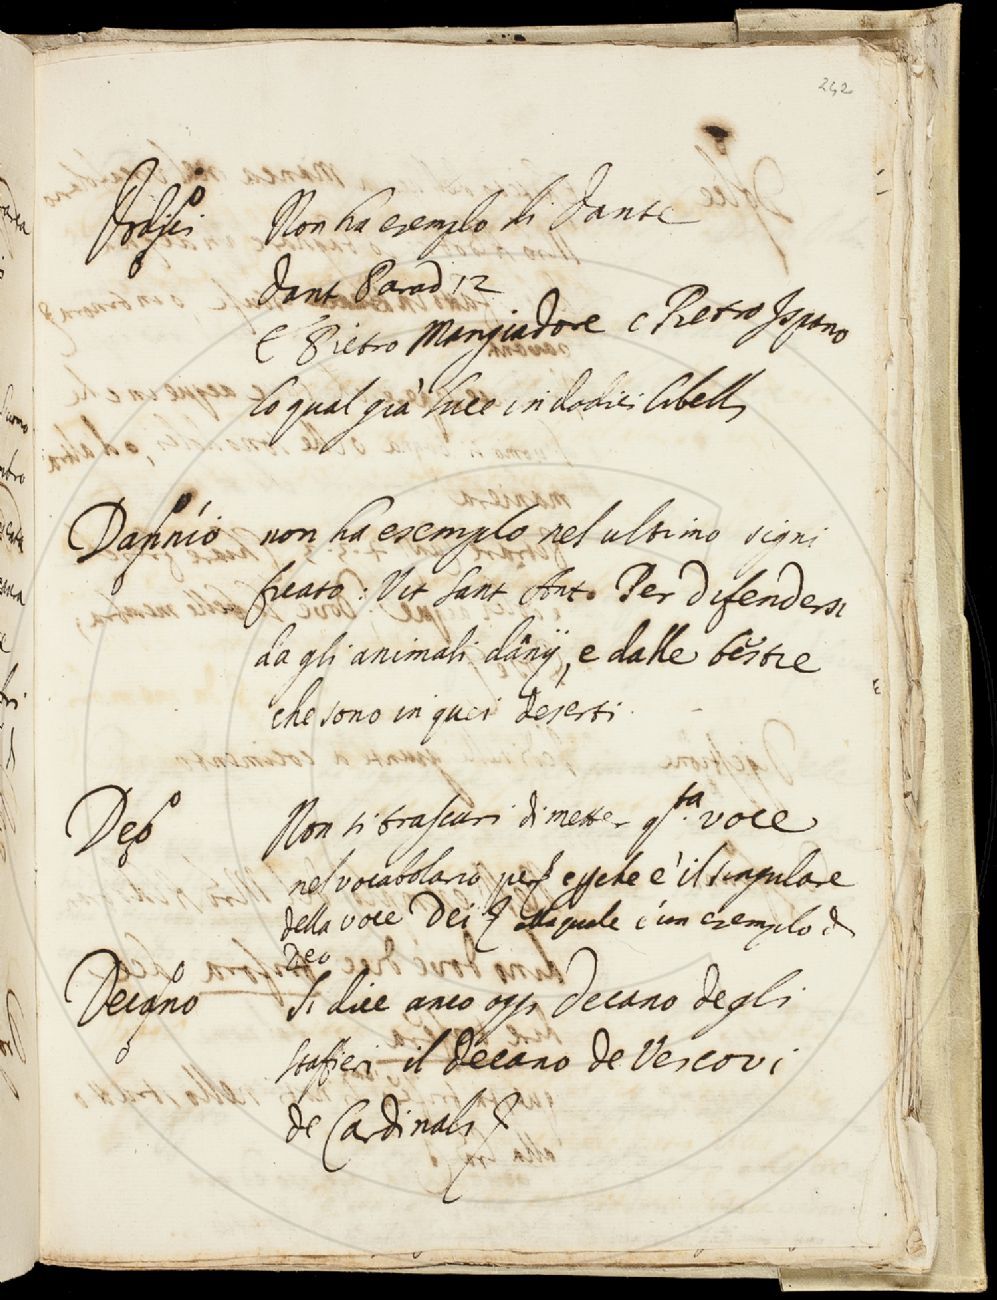 242
Dodici Non ha esemplo di Dante
Dant Parad 12
E Pietro Mangiadore e Pietro Ispano
lo qual già luce in dodici libelli
Dannio non ha esemplo nel ultimo signi
ficato: Vit Sant Ant. Per difendersi
da gli animali dānij, e dalle bestie
che sono in quei deserti.
Deo Non si trascuri di metter qsta voce
nel vocabolario perche è il singulare
della voce Dei alla quale è un esemplo di
Deo
Decano Si dice anco oggi Decano degli
staffieri il decano de Vescovi
de Cardinali